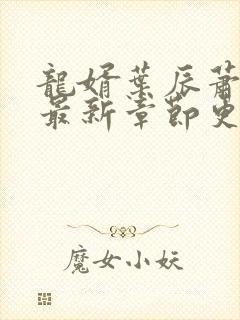 龍婿葉辰蕭
最新章節更
魔女小妖